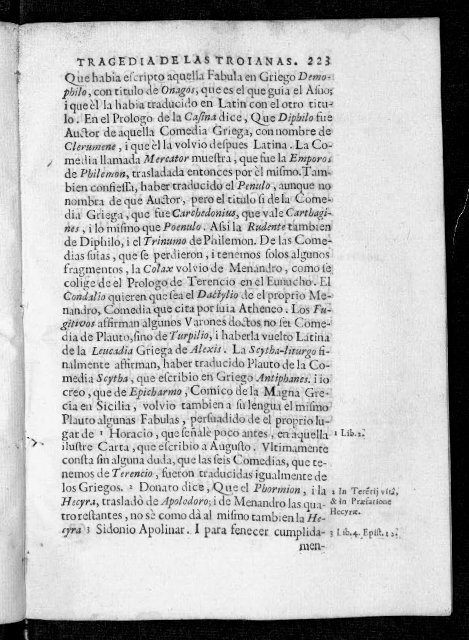 TRAGEDIA DE LAS TROIANAS. 223
Que habia escripto aquella Fabula en Griego Demo-
philo, con titulo de Onagòs, que es el que guia el Asno;
i que èl la habia traducido en Latin con el otro titu-
lo. En el Prologo de la Casina dice, Que Diphilo fue
Auctor de aquella Comedia Griega, con nombre de
Clerumene, i que èl la volviò despues Latina. La Co-
media llamada Mercator muestra, que fue la Emporos
de Philemon, trasladada entonces por èl mismo. Tam-
bien confiessa, haber traducido el Penulo, aunque no
nombra de què Auctor, pero el titulo si de la Come-
dia Griega, que fue Carchedonius, que vale Carthagi-
nes, i lo mismo que Poenulo. Assi la Rudente tambien
de Diphilo, i el Trinumo de Philemon. De las Come-
dias suias, que se perdieron, i tenemos solos algunos
fragmentos, la Colax volviò de Menandro, como se
colige de el Prologo de Terencio en el Eunucho. El
Condalio quieren que sea el Dactylio de el proprio Me-
nandro, Comedia que cita por suia Atheneo. Los Fu-
gitivos affirman algunos Varones doctos no ser Come-
dia de Plauto, sino de Turpilio, i haberla vuelto Latina
de la Leucadia Griega de Alexis. La Scytha-liturgo fi-
nalmente affirman, haber traducido Plauto de la Co-
media Scytha, que escribio en Griego Antiphanes. i io
creo, que de Epicharmo, Comico de la Magna Gre-
cia en Sicilia, volvio tambien a su lengua el mismo
Plauto algunas Fabulas, persuadido de el proprio lu-
gar de 1 Horacio, que señalè poco antes, en aquella 1 Lib. 2.
ilustre Carta, que escribio a Augusto. Vltimamente
consta sin alguna duda, que las seis Comedias, que te-
nemos de Terencio, fueron traducidas igualmente de
los Griegos. 2 Donato dice, Que el Phormion, i la 2 In Terētij vitâ,
Hecyra, trasladò de Apolodoro; i de Menandro las qua- & in Præfatione
tro restantes, no sè como dà al mismo tambien la He- Hecyræ.
cyra 3 Sidonio Apolinar. I para fenecer cumplida- 3 Lib. 4. Epist. 12.
men-